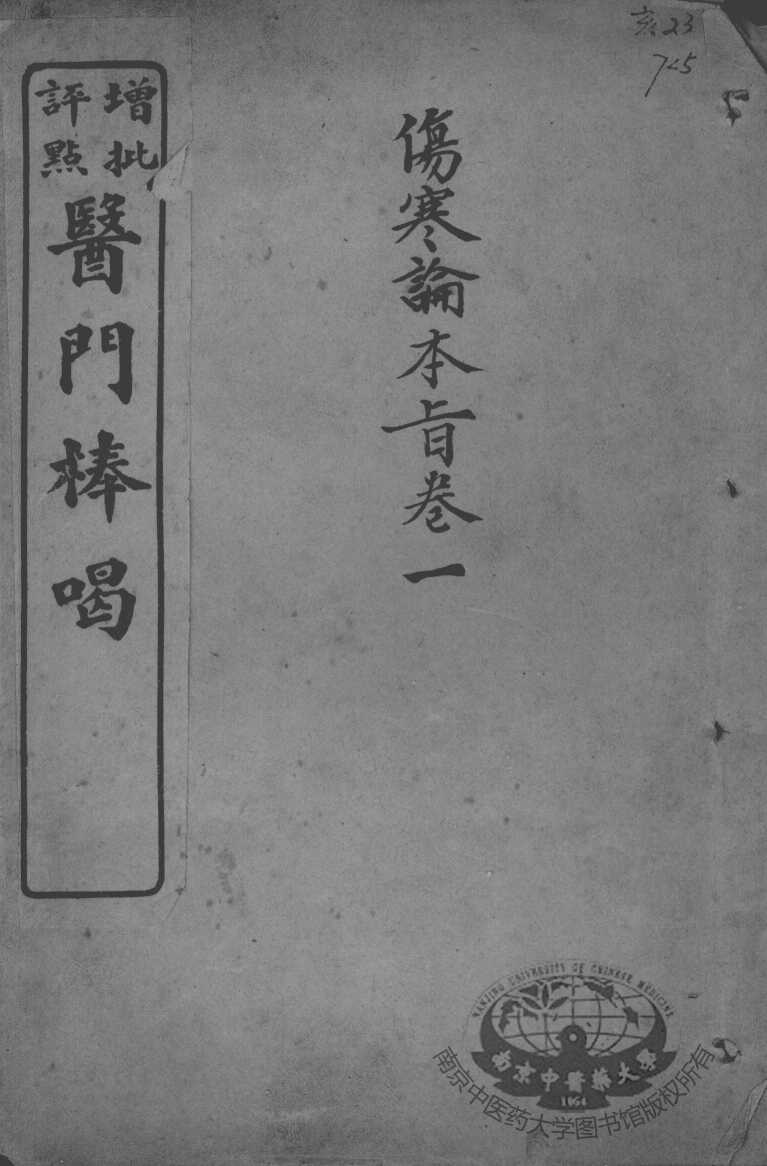 亥23
725
傷寒論本旨卷一
增批
評點
醫門棒喝
NANJING UNIVERSITY OF CHINESE MEDICINE
南京中醫藥大學
1954
南京中医药大学图书馆版权所有